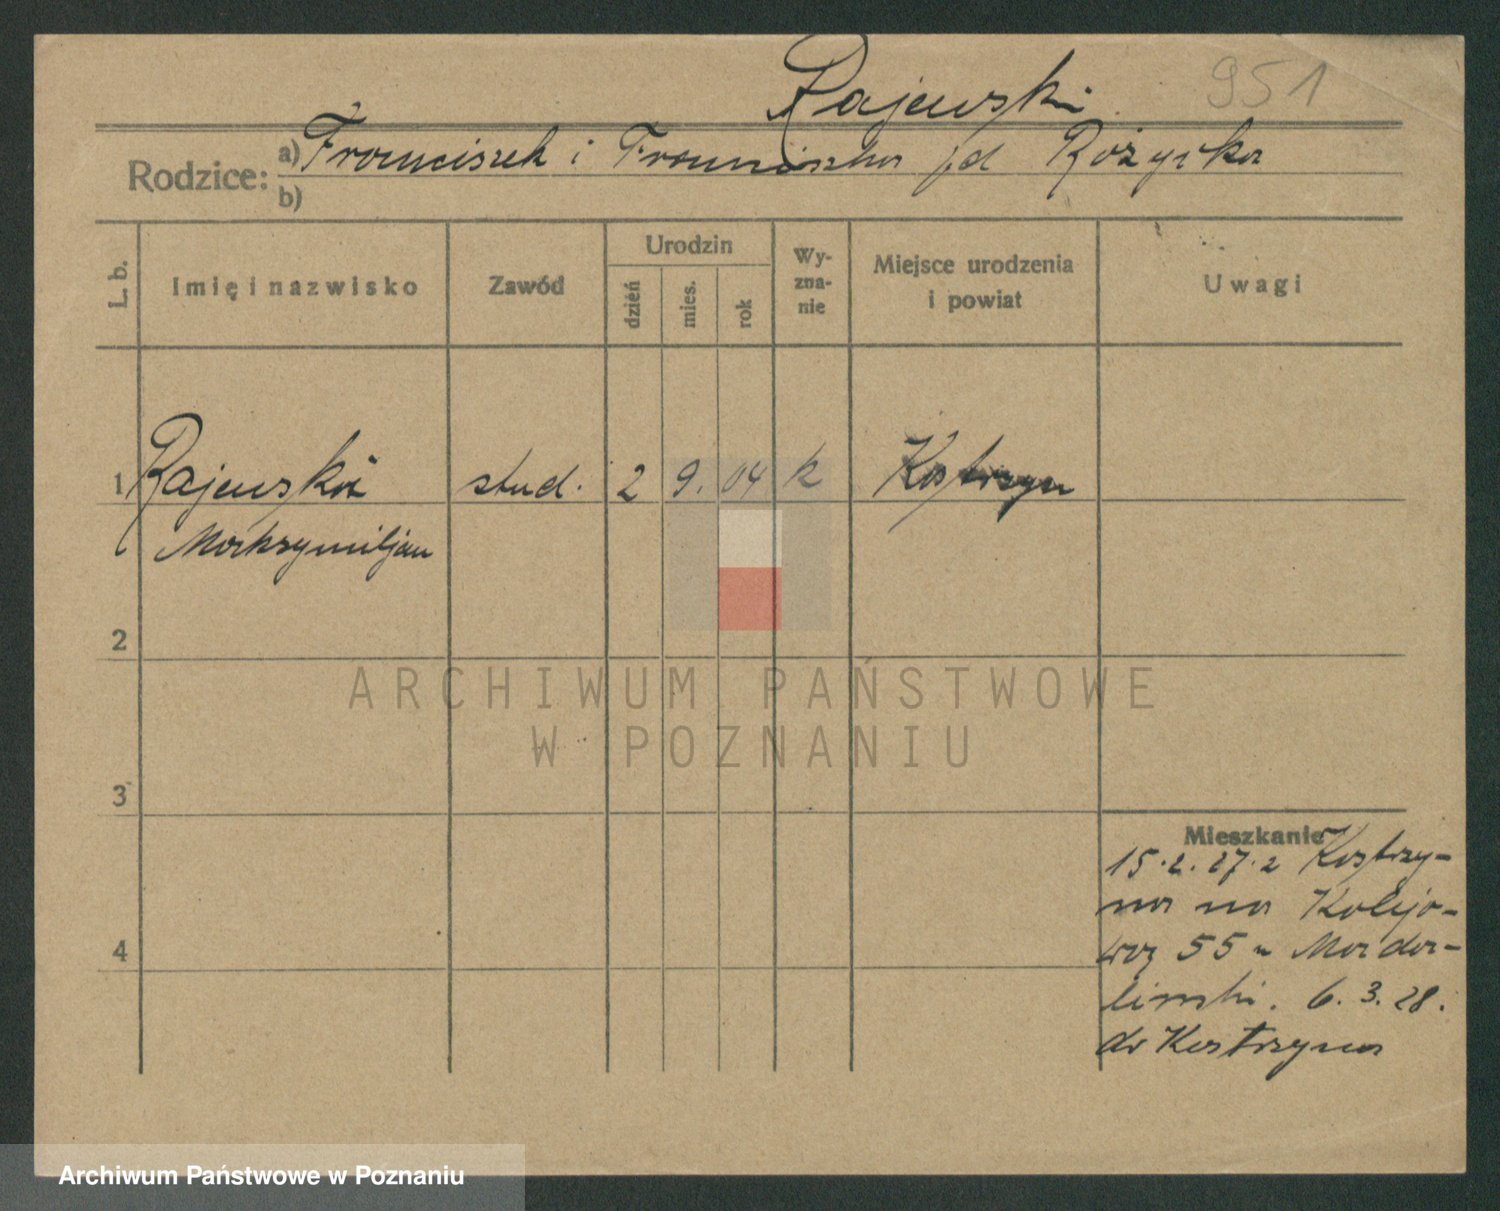 951
Rajewski
Rodzice: a) Franciszek i Franciszka fd Różycka
b)
L. b.
Imię i nazwisko
Zawód
Urodzin
dzień
mies.
rok
Wy-
zna-
nie
Miejsce urodzenia
i powiat
Uwagi
1 Rajewski stud. 2 9. 04 k Kostrzyn
Maksymiljan
2
ARCHIWUM PAŃSTWOWE
W POZNANIU
3
Mieszkanie
15.2.27. z Kostrzy-
na na Kolejo-
wą 55 u Mada-
linski. 6.3.28.
4
do Kostrzyna
Archiwum Państwowe w Poznaniu